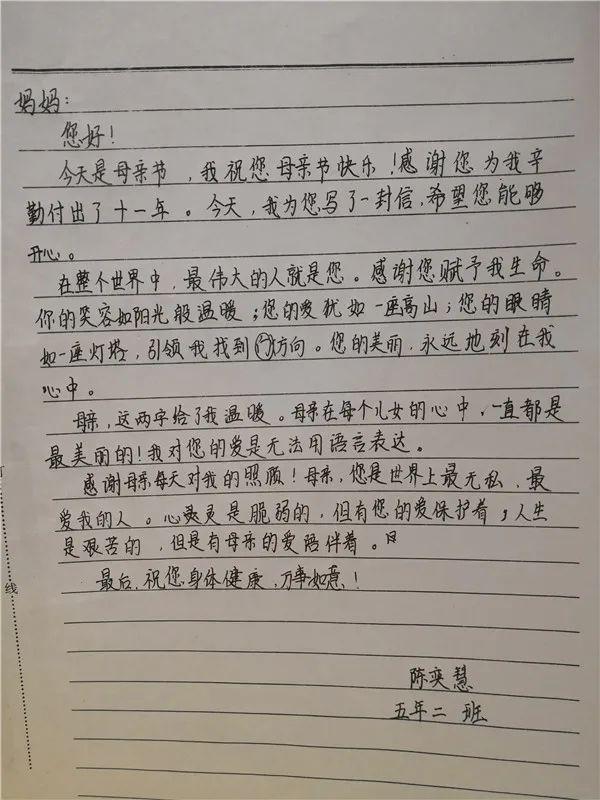 妈妈：
您好！
今天是母亲节，我祝您母亲节快乐！感谢您为我辛
勤付出了十一年。今天，我为您写了一封信，希望您能够
开心。
在整个世界中，最伟大的人就是您。感谢您赋予我生命。
你的笑容如阳光般温暖；您的爱犹如一座高山；您的眼睛
如一座灯塔，引领我找到方向。您的美丽，永远地刻在我
心中。
母亲，这两字给了我温暖。母亲在每个儿女的心中，一直都是
最美丽的！我对您的爱是无法用语言表达。
感谢母亲每天对我的照顾！母亲，您是世界上最无私，最
爱我的人。心灵是脆弱的，但有您的爱保护着；人生
是艰苦的，但是有母亲的爱陪伴着。
最后，祝您身体健康，万事如意！
陈奕慧
五年二班
线